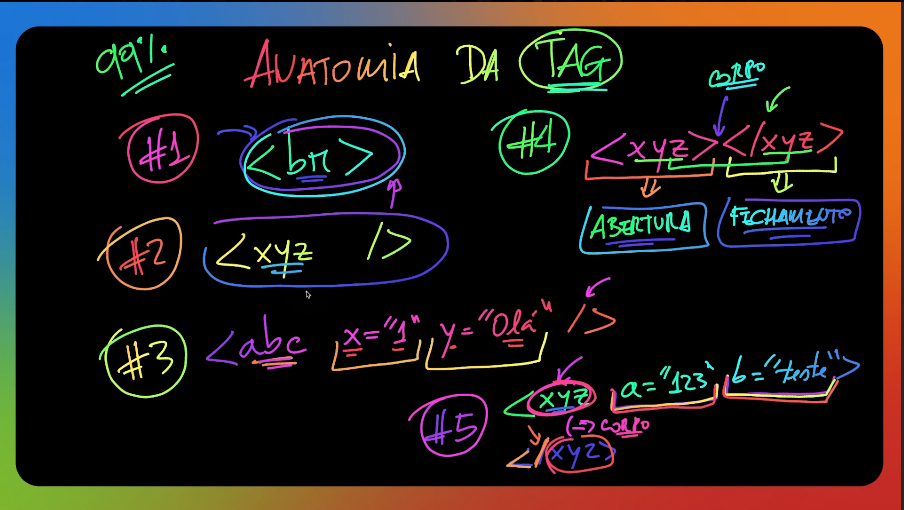 99%
ANATOMIA DA TAG
#1
<br>
#2
<xyz />
#3
<abc x="1" y="Olá" />
#4
CORPO
<xyz></xyz>
ABERTURA
FECHAMENTO
#5
<xyz a="123" b="teste">
(=> CORPO
</xyz>